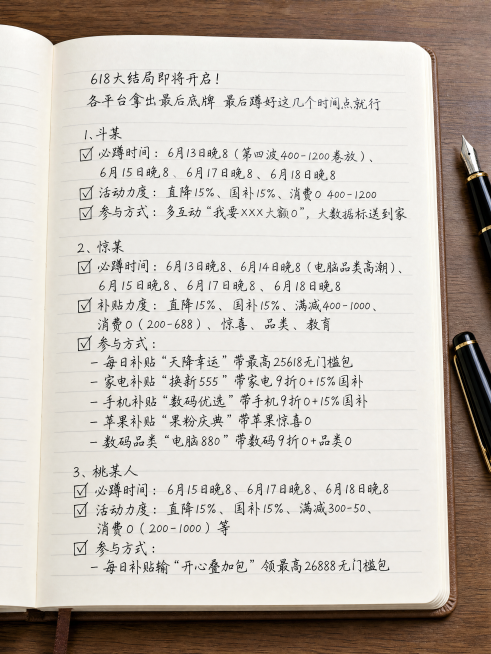 618大结局即将开启！
各平台拿出最后底牌 最后蹲好这几个时间点就行
1、斗某
☑ 必蹲时间：6月13日晚8（第四波400-1200卷放）、
6月15日晚8、6月17日晚8、6月18日晚8
☑ 活动力度：直降15%、国补15%、消费0 400-1200
☑ 参与方式：多互动“我要×××大额0”，大数据标送到家
2、惊某
☑ 必蹲时间：6月13日晚8、6月14日晚8（电脑品类高潮）、
6月15日晚8、6月17日晚8、6月18日晚8
☑ 补贴力度：直降15%、国补15%、满减400-1000、
消费0（200-688）、惊喜、品类、教育
☑ 参与方式：
- 每日补贴“天降幸运”带最高25618无门槛包
- 家电补贴“换新555”带家电9折0+15%国补
- 手机补贴“数码优选”带手机9折0+15%国补
- 苹果补贴“果粉庆典”带苹果惊喜0
- 数码品类“电脑880”带数码9折0+品类0
3、桃某人
☑ 必蹲时间：6月15日晚8、6月17日晚8、6月18日晚8
☑ 活动力度：直降15%、国补15%、满减300-50、
消费0（200-1000）等
☑ 参与方式：
- 每日补贴输“开心叠加包”领最高26888无门槛包